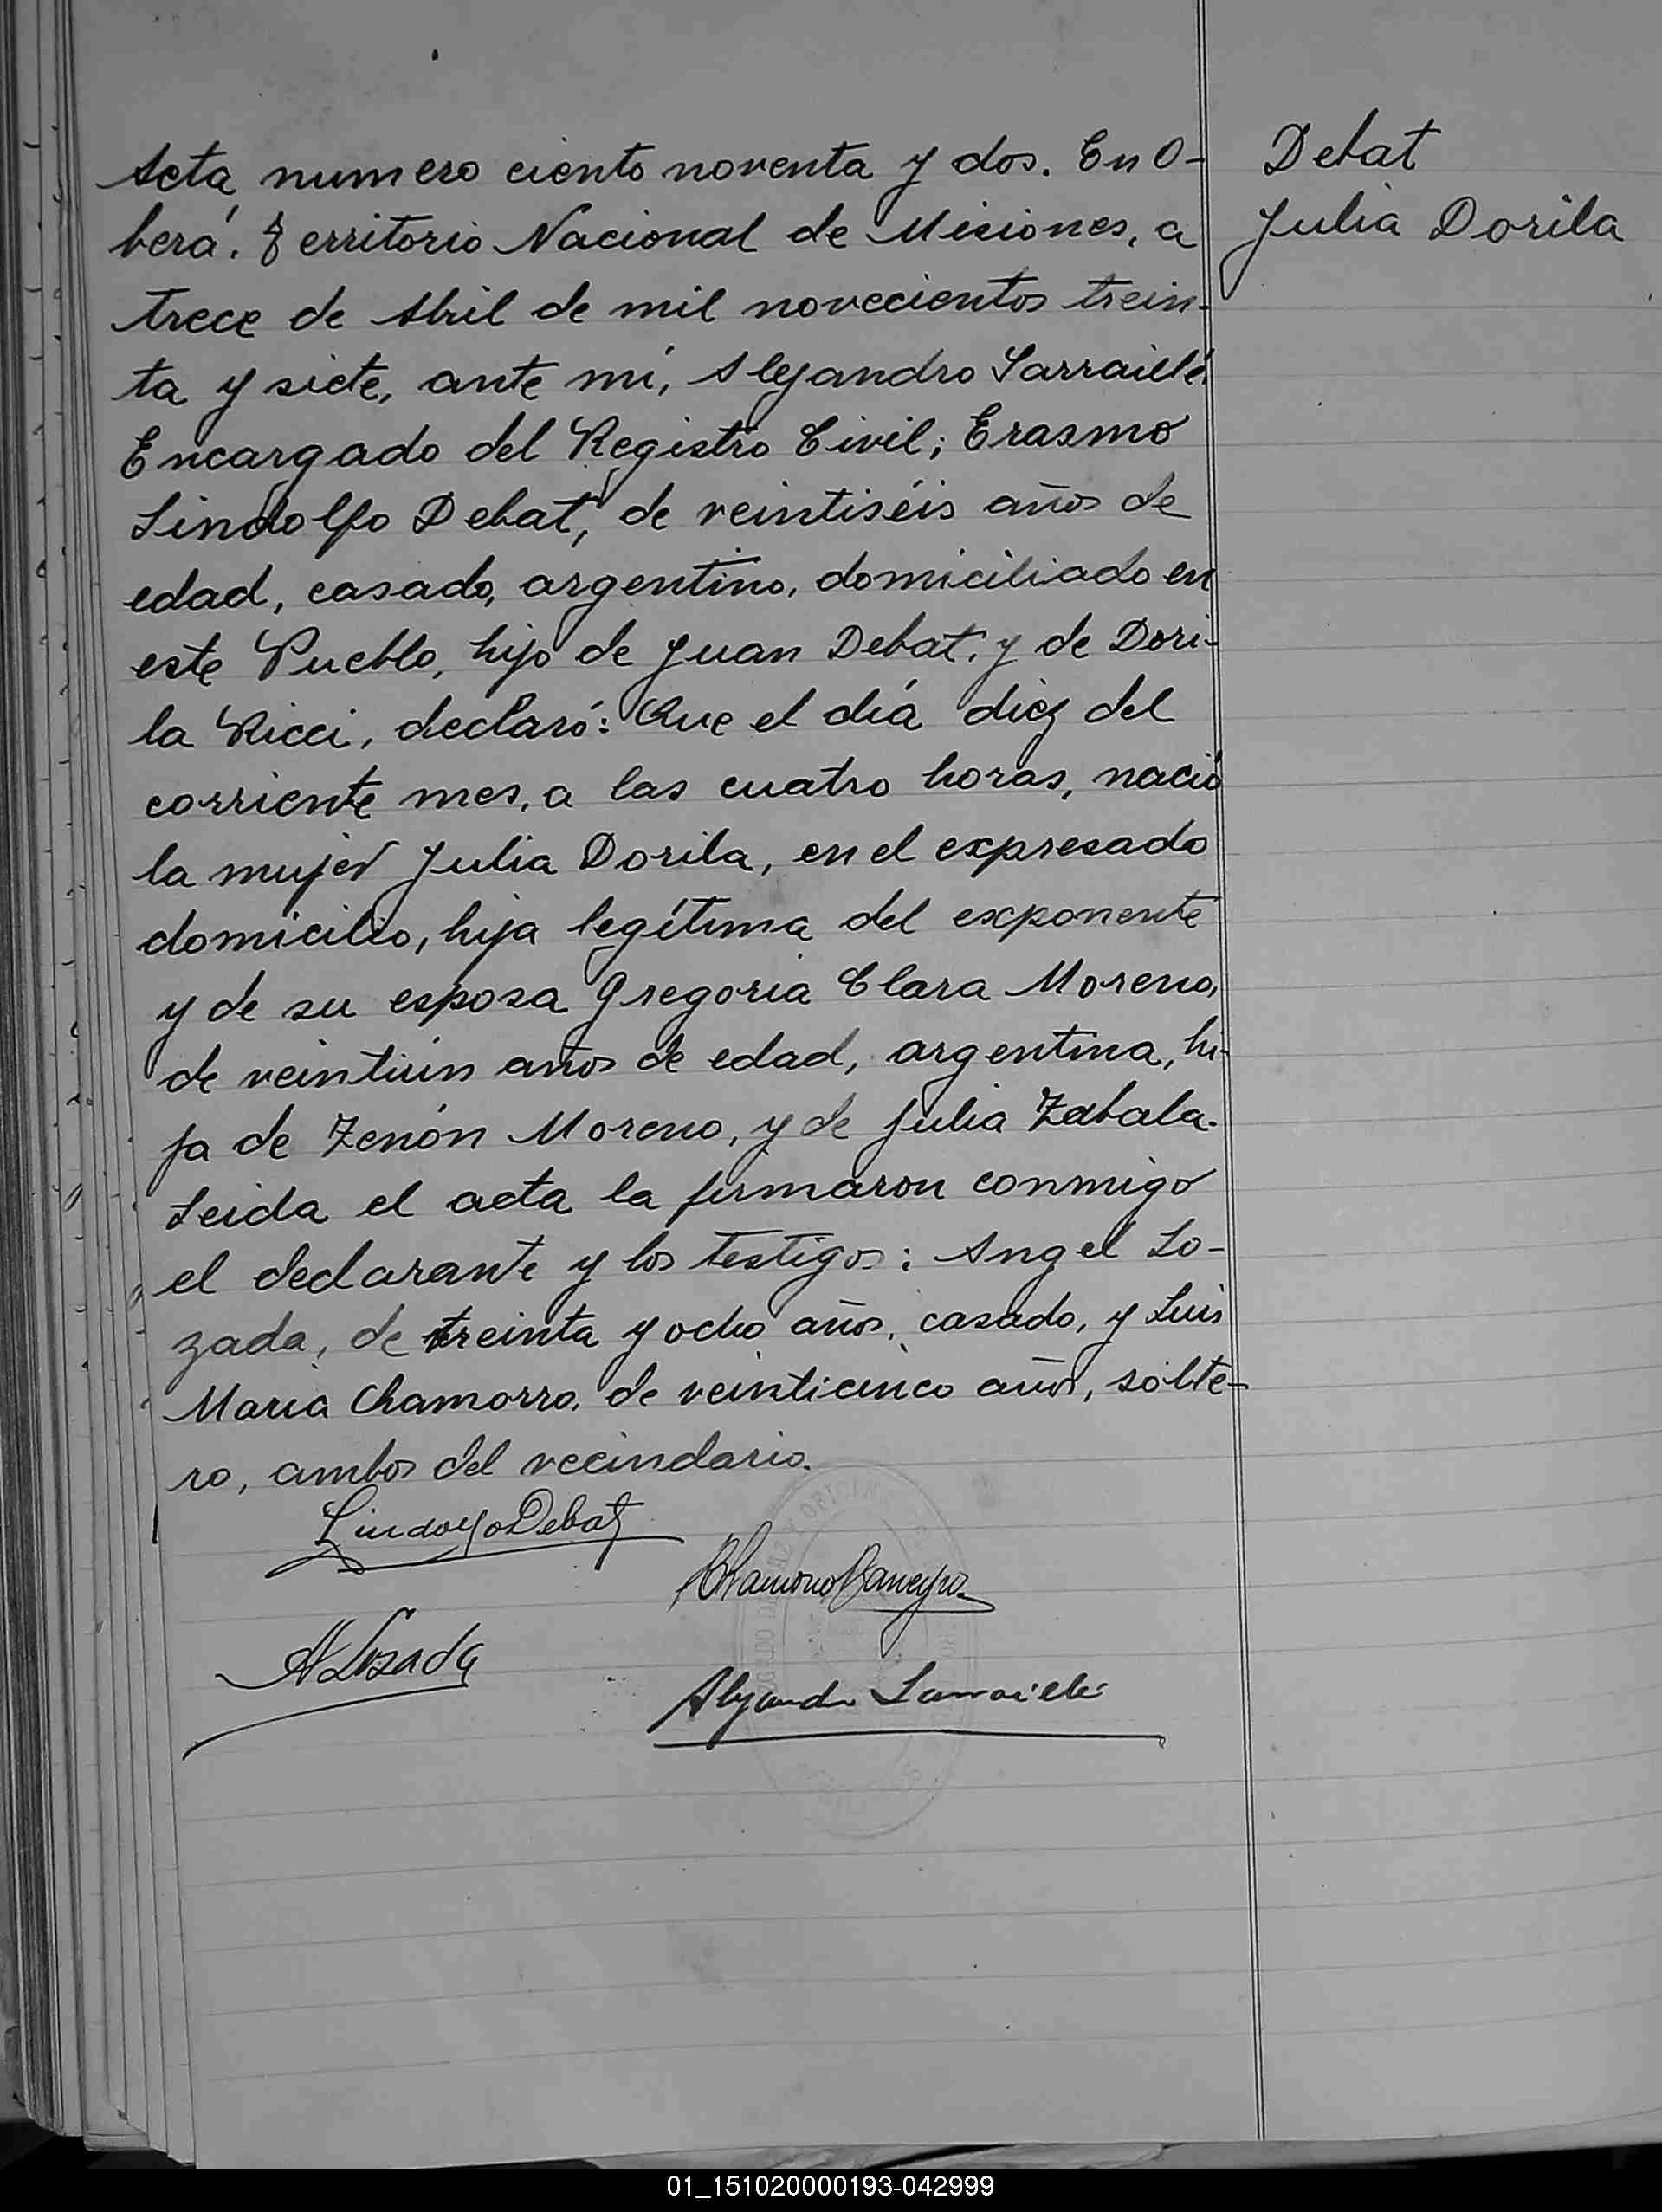 Acta, numero ciento noventa y dos. En O-
berá. Territorio Nacional de Misiones, a
trece de Abril de mil novecientos trein-
ta y siete, ante mí, Alejandro Sarraillé,
Encargado del Registro Civil; Erasmo
Lindolfo Debat, de veintiséis años de
edad, casado, argentino, domiciliado en
este Pueblo, hijo de Juan Debat, y de Dori-
la Ricci, declaró: Que el día diez del
corriente mes, a las cuatro horas, nació
la mujer Julia Dorila, en el expresado
domicilio, hija legítima del exponente
y de su esposa Gregoria Clara Moreno,
de veintiún años de edad, argentina, hi-
ja de Zenón Moreno, y de Julia Zabala.
Leida el acta la firmaron conmigo
el declarante y los testigos: Angel Lo-
zada, de treinta y ocho años, casado, y Luis
Maria Chamorro, de veinticinco años, solte-
ro, ambos del vecindario.
Debat
Julia Dorila
Lindolfo Debat
A Lozada
Alejandro Sarraillé
01_151020000193-042999